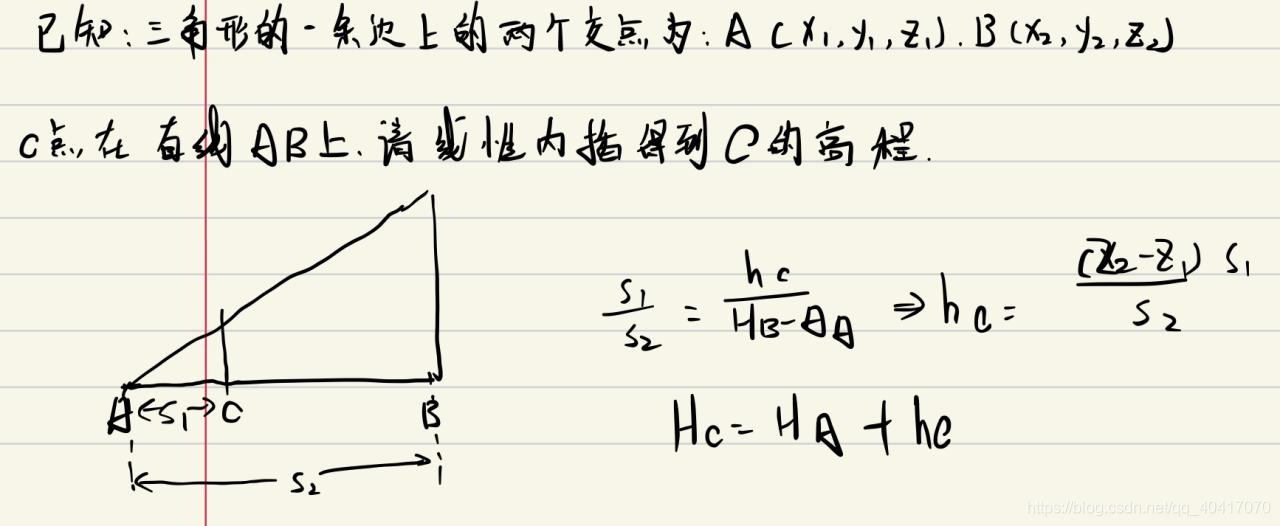 已知:三角形的一条边上的两个交点为: A(x₁,y₁,z₁).B(x₂,y₂,z₂)
C点在直线AB上.请线性内插得到C的高程.
S₁/S₂ = hc/(HB-AA) ⇒ hc = (Z₂-Z₁)S₁/S₂
A←S₁→C B
Hc = HA + hc
S₂
https://blog.csdn.net/qq_40417070